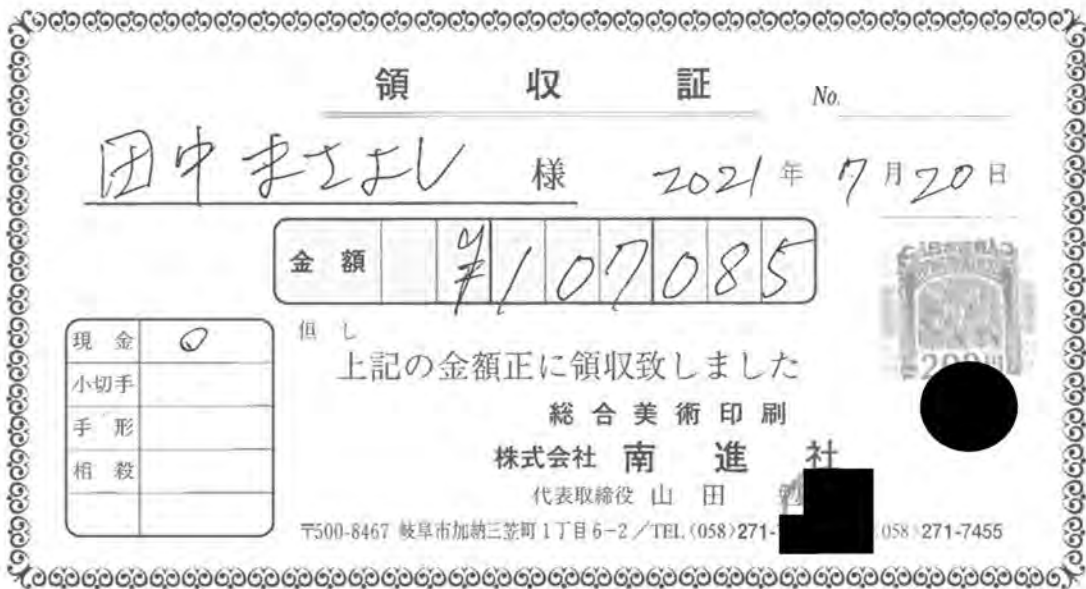 領 収 証 No.
田中まさよし 様 2021年 7月20日
金額 ¥107085
現金 ○
小切手
手形
相殺
但し
上記の金額正に領収致しました
総合美術印刷
株式会社 南進社
代表取締役 山田
〒500-8467 岐阜市加納三笠町1丁目6-2/TEL(058)271- (058)271-7455